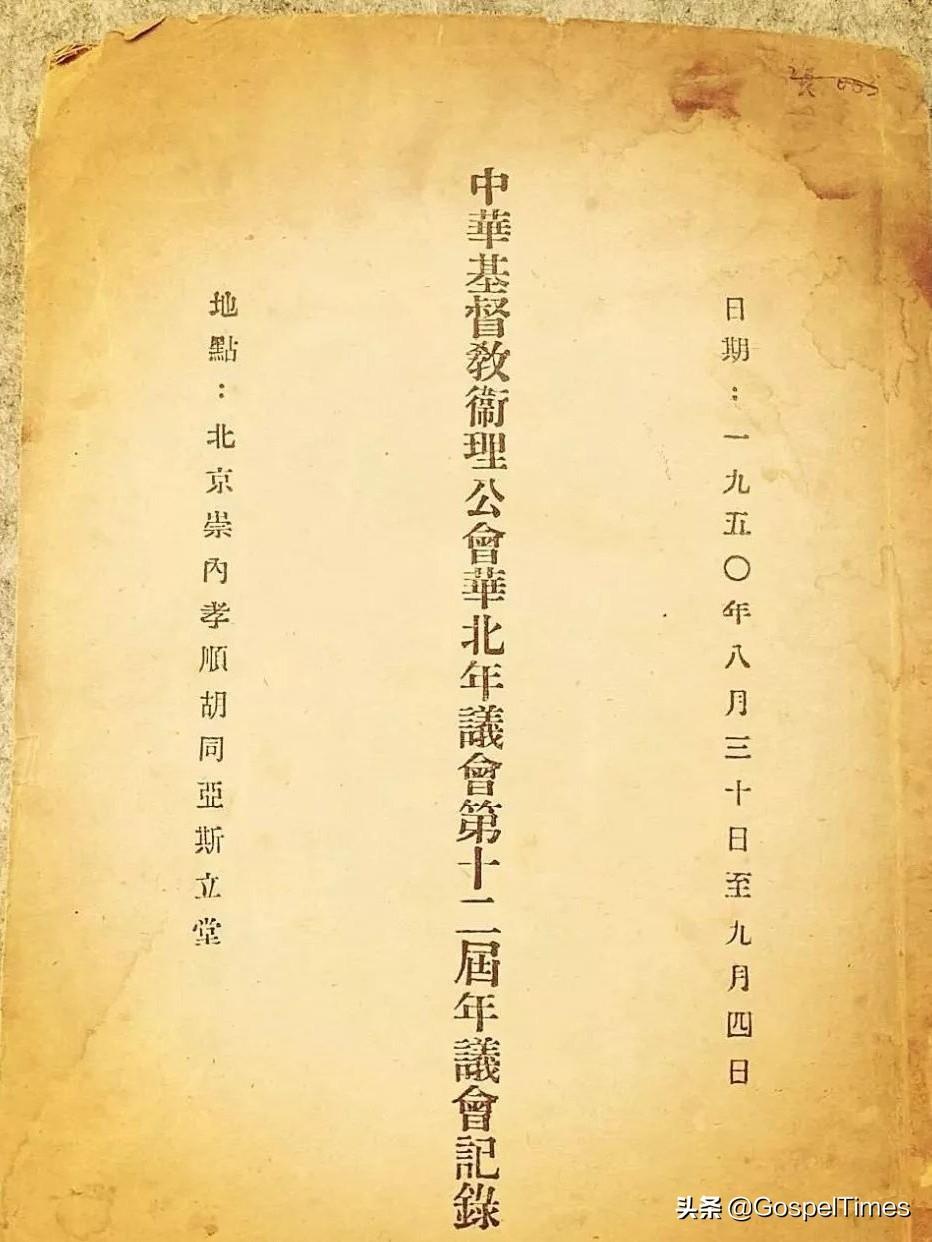 日期：一九五〇年八月三十日至九月四日
中華基督敎衞理公會華北年議會第十二屆年議會記錄
地點：北京崇內孝順胡同亞斯立堂
头条 @GospelTimes